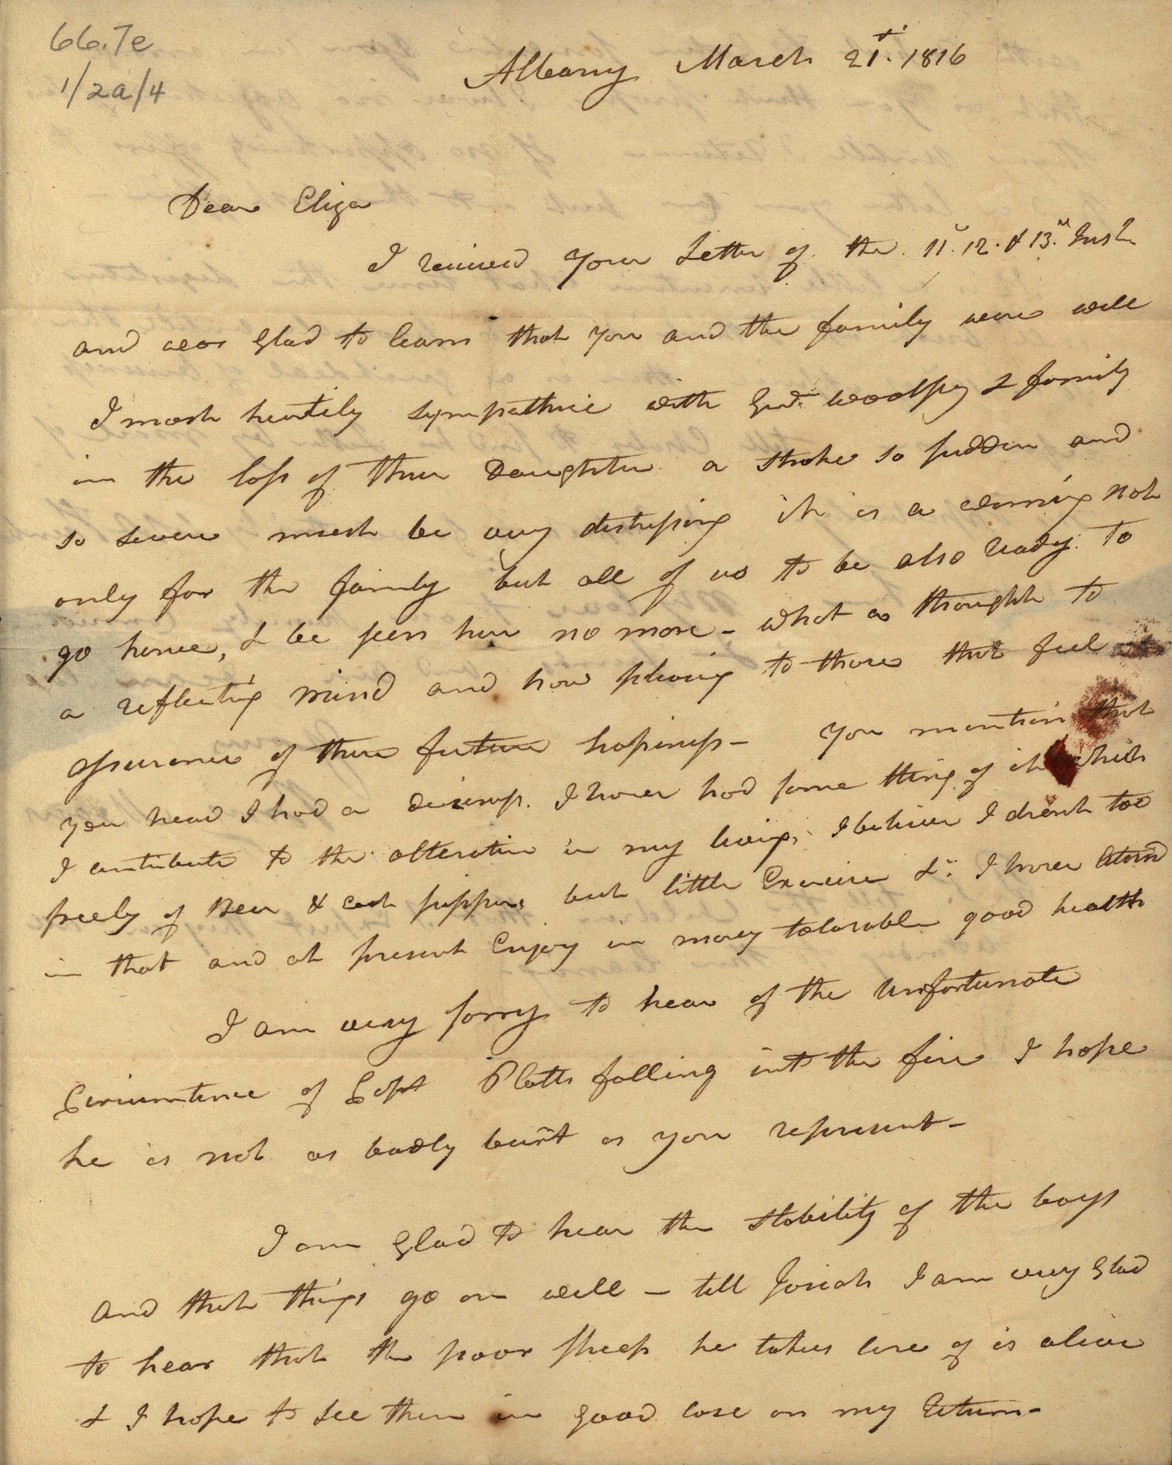 66.7e
1/2a/4
Albany March 21t. 1816
Dear Eliza
I recieved your Letter of the 11. 12. & 13. Inst
and was glad to learn that you and the family were well
I most heartily sympathise with Genl. & family
in the loss of their Daughter a stroke so sudden and
so severe must be very distressing it is a warning not
only for the family but all of us to be also ready to
go hence, & be seen here no more - what a thought to
a reflecting mind and how pleasing to those that feel
assurance of their future happiness - You mention that
you heard I had a I have had some thing of it which
I contribute to the alteration in my living, I believe I drank too
freely of Beer & suppers but little Exercise &c I have
in that and at present Enjoy in may tolarable good health
I am very sorry to hear of the unfortunate
Circumtence of Capt Platts falling into the fire I hope
he is not as badly burnt as you represent -
I am Glad to hear the stability of the boys
and that things go on well - tell Josiah I am very Glad
to hear that the poor sheep he takes care of is alive
& I hope to see them in good case on my Return -